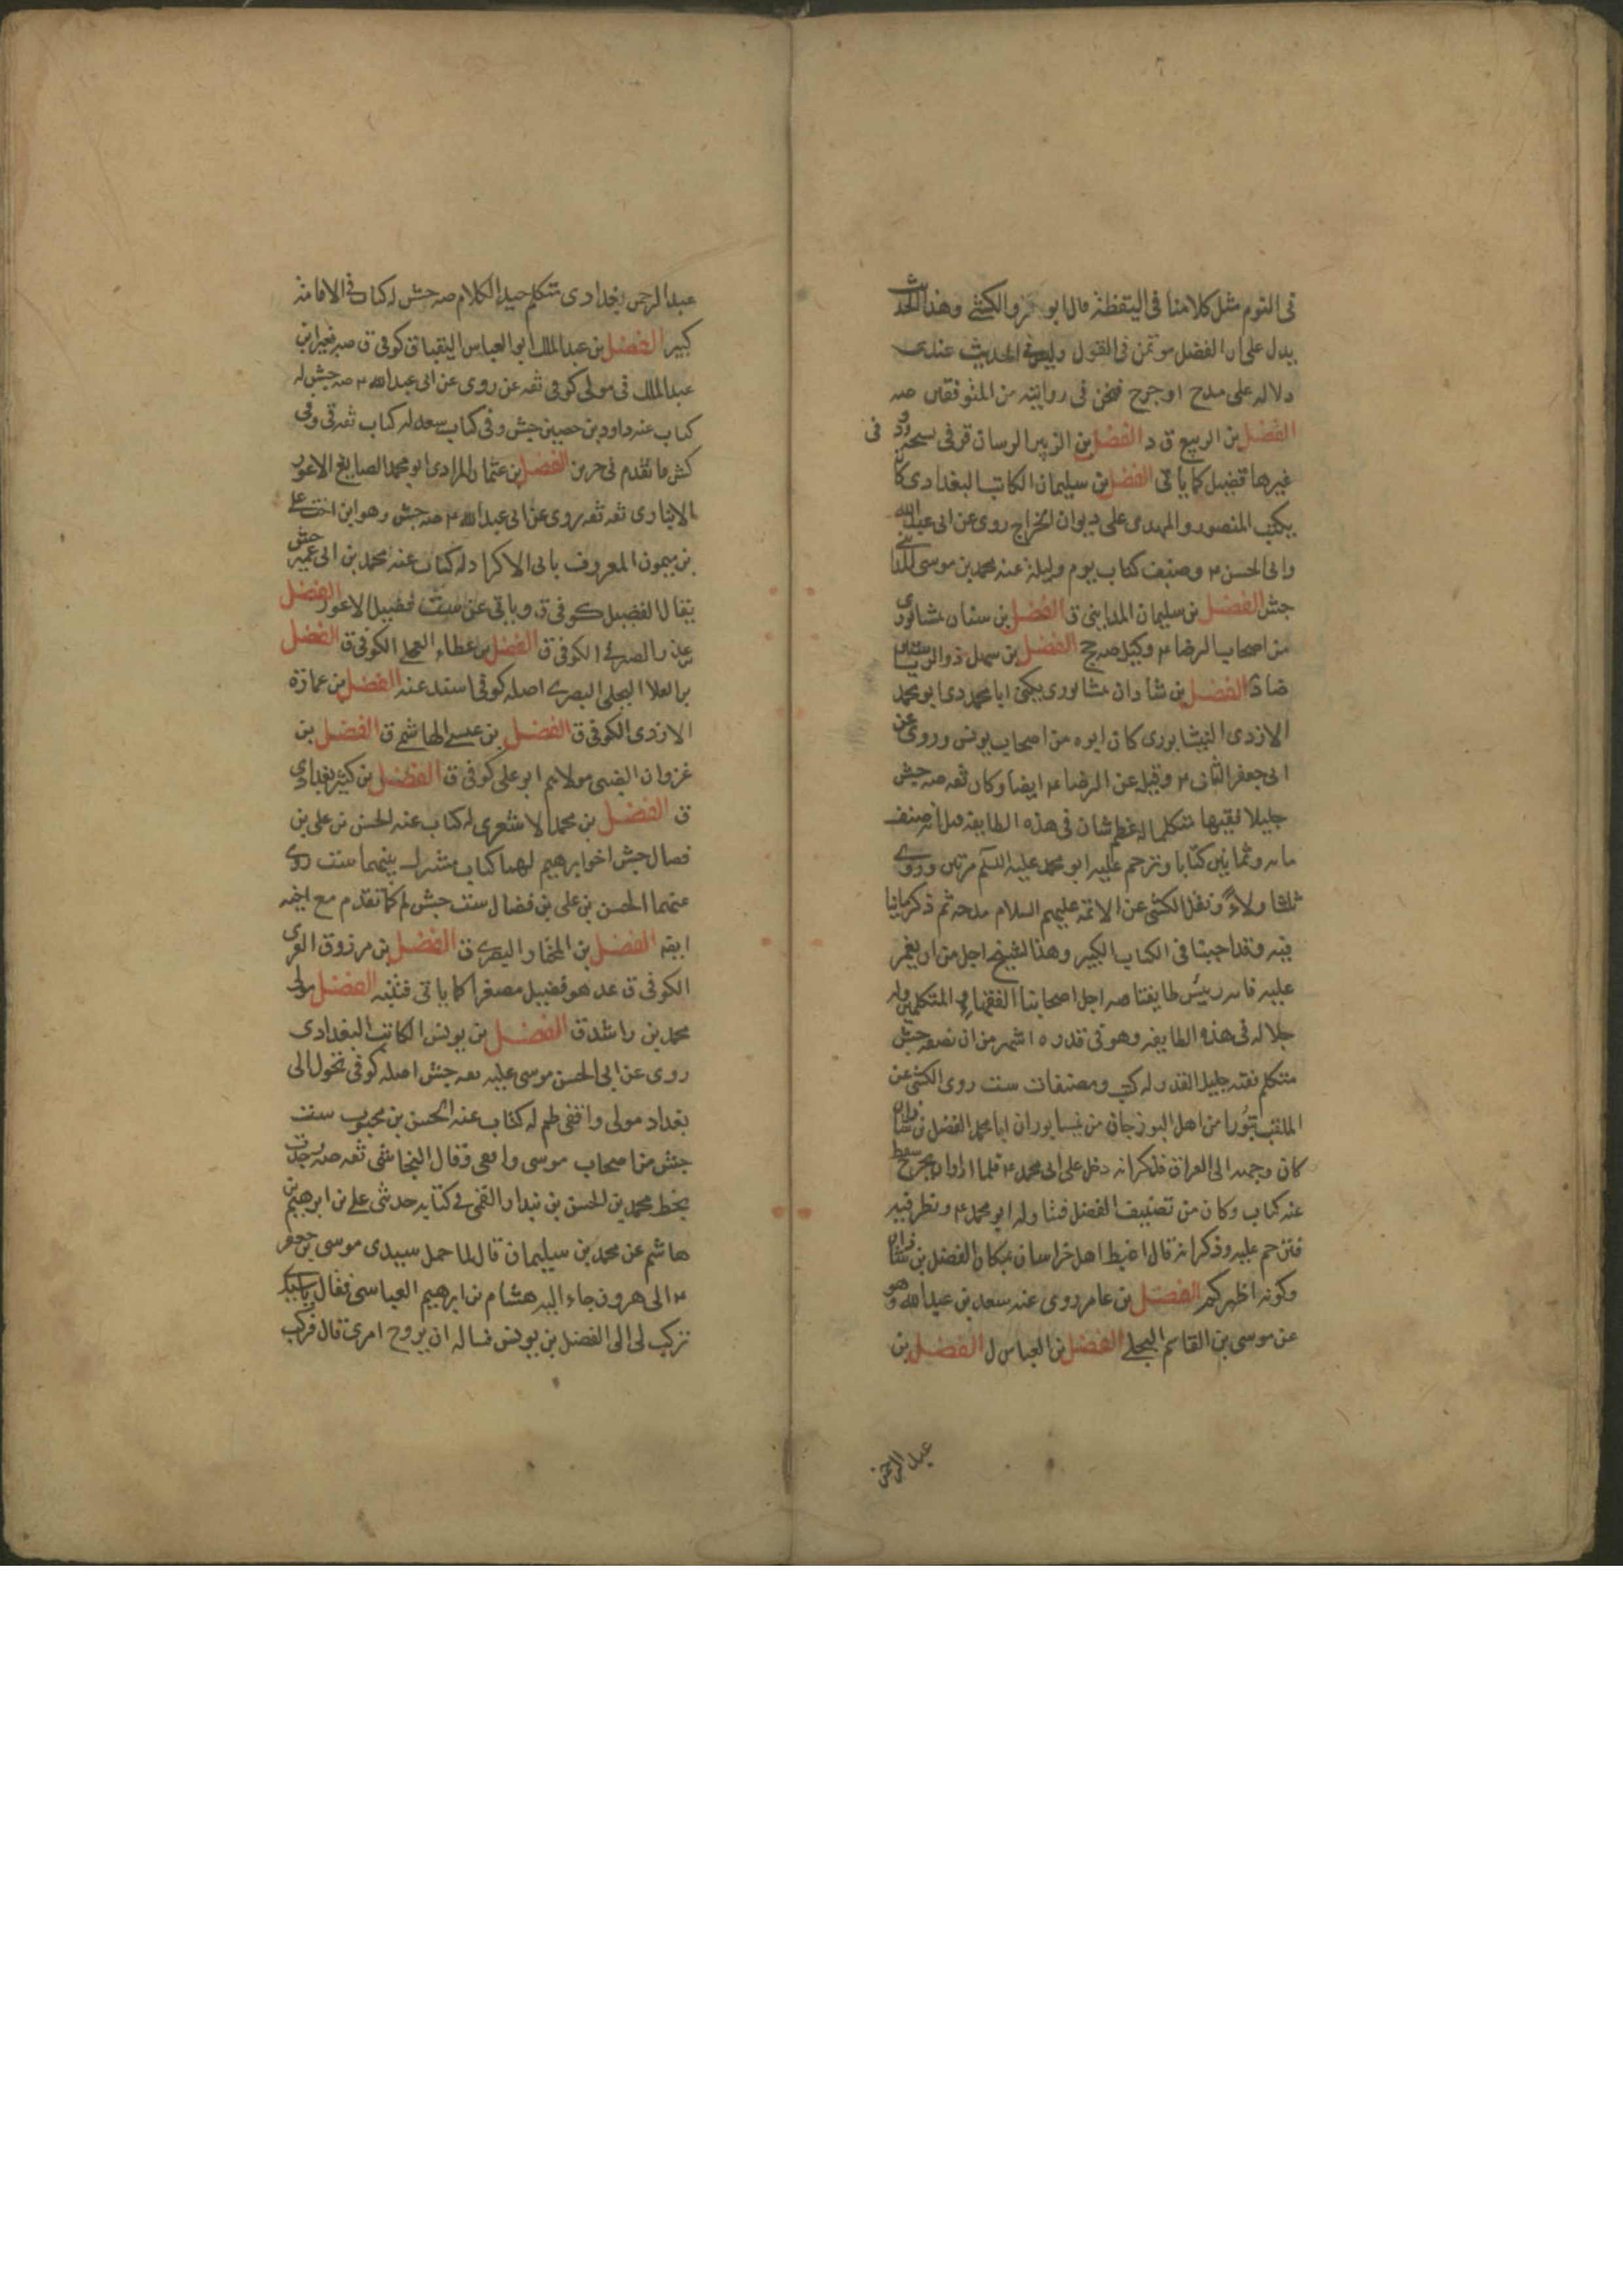 فى النوم مثل كلامنا فى اليقظة قال ابو عمرو الكشى وهذا الحديث
يدل على ان الفضل مؤتمن فى القول وليس فى الحديث عندى
دلاله على مدح او جرح فنحن فى روايته من المتوقفين صه
الفضل بن الربيع ق د الفضل بن الزبير الرسان قر فى نسخه ود فى
غيرها فضيل كما ياتى الفضل بن سليمان الكاتب البغدادى كان
يكتب المنصور والمهدى على ديوان الخراج روى عن ابى عبدالله
وابى الحسن ع وصنف كتاب يوم وليلة عنه محمد بن موسى المدائنى
جش الفضل بن سليمان المداينى ق الفضل بن سنان نشابورى
من اصحاب الرضا ع وكيل صه جخ الفضل بن سهل ذوالرياستين
ضا ق الفضل بن شاذان نشابورى يكنى ابا محمد دى ابو محمد
الازدى النيشابورى كان ابوه من اصحاب يونس وروى عن
ابى جعفر الثانى ع وقيل عن الرضا ع ايضا وكان ثقه صه جش
جليلا فقيها متكلما له عظم شان فى هذه الطايفه قيل انه صنف
مائه وثمانين كتابا وترحم عليه ابو محمد عليه السلم مرتين وروى
ثلثا ولاءً ونقل الكشى عن الائمه عليهم السلام مدحه ثم ذكر ماينا
فيه وقد اجبنا فى الكتاب الكبير وهذا الشيخ اجل من ان يغمز
عليه فانه رئيس طايفتنا صه اجل اصحابنا الفقهاء والمتكلمين وله
جلاله فى هذه الطايفه وهو فى قدره اشهر من ان نصفه جش
متكلم فقيه جليل القدر له كتب ومصنفات ست روى الكشى عن
الملقب بتورا من اهل البوزجان من نيسابور ان ابا محمد الفضل بن شاذان
كان وجهه الى العراق فذكر انه دخل على ابى محمد ع فلما اراد ان يخرج سقط
عنه كتاب وكان من تصنيف الفضل فتناوله ابو محمد ع ونظر فيه
فترحم عليه وذكر انه قال اغبط اهل خراسان بمكان الفضل بن شاذان
وكونه اظهركم الفضل بن عامر روى عنه سعد بن عبدالله وهو
عن موسى بن القاسم البجلى الفضل بن العباس ل الفضل بن
عبد الرحمن
عبد الرحمن بغدادى متكلم جيد الكلام صه جش له كتاب فى الامامة
كبير الفضل بن عبد الملك ابو العباس البقباق كوفى ق صه
عبد الملك ق مولى كوفى ثقه عن روى عن ابى عبدالله ع صه جش له
كتاب عنه داود بن حصين جش وفى كتاب سعد له كتاب ثقه ق وفى
كش ما تقدم فى حريز الفضل بن عثمان المرادى ابو محمد الصايغ الاعور
الانبارى ثقه ثقه روى عن ابى عبدالله ع صه جش وهو ابن اخت على
بن ميمون المعروف بابى الاكراد له كتاب عنه محمد بن ابى عمير جش
يقال الفضيل كوفى ق وياتى عن ست فضيل الاعور الفضل
عذر الصيرفى الكوفى ق الفضل بن عطاء العجلى الكوفى ق الفضل
بن العلا البجلى البصرى اصله كوفى اسند عنه الفضل بن عمارة
الازدى الكوفى ق الفضل بن عيسى الهاشمى ق الفضل بن
غزوان الضبى مولاهم ابو على كوفى ق الفضل بن كثير بغدادى
ق الفضل بن محمد الاشعرى له كتاب عنه الحسن بن على بن
فضال جش اخو ابرهيم لهما كتاب مشترك بينهما ست روى
عنهما الحسن بن على بن فضال ست جش لم كما تقدم مع اخيه
ايضه الفضل بن المختار البصرى ق الفضل بن مرزوق الغزى
الكوفى ق عد هو فضيل مصغرا كما ياتى فتنبه الفضل مولى
محمد بن راشد ق الفضل بن يونس الكاتب البغدادى
روى عن ابى الحسن موسى عليه ثقه جش اصله كوفى تحول الى
بغداد مولى واقفى ظم له كتاب عنه الحسن بن محبوب ست
جش من اصحاب موسى واقفى وقال النجاشى ثقه صه وجدت
بخط محمد بن الحسن بن بندار القمى فى كتابه حدثنى على بن ابرهيم بن
هاشم عن محمد بن سليمان قال لما حمل سيدى موسى بن جعفر
ع الى هرون جاء اليه هشام بن ابرهيم العباسى فقال يا سيدى
تركب لى الى الفضل بن يونس فساله ان يروح امرى قال فركب